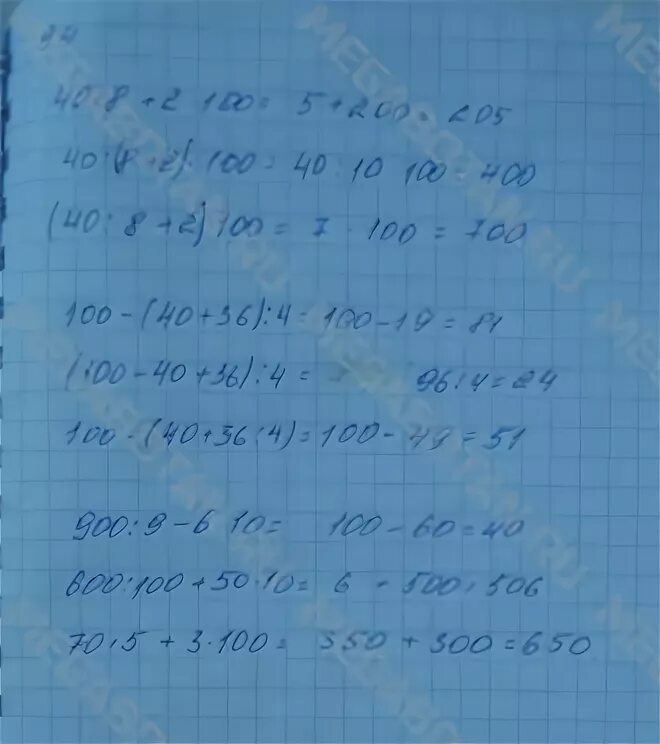 40:8+2 100= 5+200= 205
40:(8+2)·100= 40:10 100=400
(40:8+2)100= 7·100=700
100-(40+36):4=100-19=81
(100-40+36):4= 96:4=24
100-(40+36:4)=100-49=51
900:9-6 10= 100-60=40
600:100+50·10= 6 + 500=506
70·5+3·100= 350+300=650
MEGABOTAN.RU